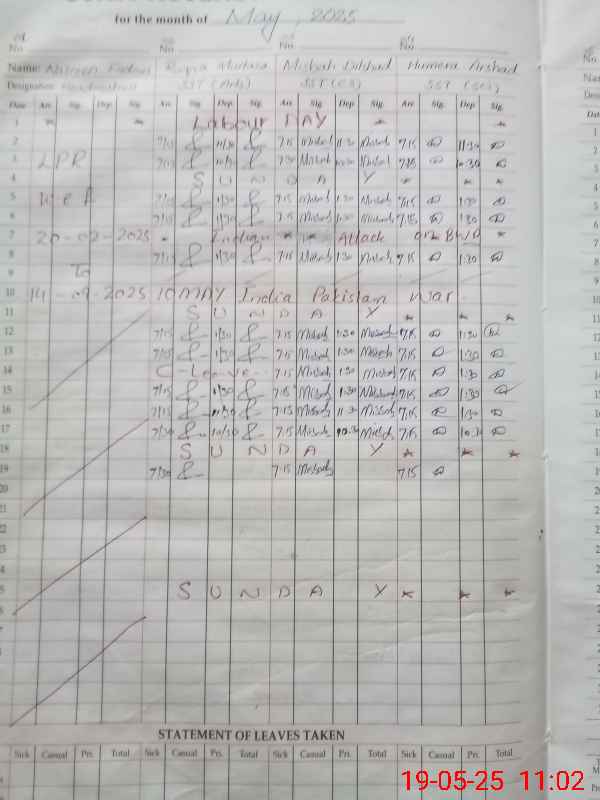 for the month of May, 2025
No. No. No. No.
Name: Nasreen Misbah Dilshad Humera Arshad
Designation SST (Arts) SST (CS) SST (Sci)
Date Arr. Sig. Dep. Sig. Arr. Sig. Dep. Sig. Arr. Sig. Dep. Sig. Arr. Sig. Dep. Sig.
1 Labour DAY *
2 7/15 11/30 7:15 Misbah 11:30 Misbah 7:15 11:30
3 LPR 7/15 10/30 7:30 Misbah 10:30 Misbah 7:15 10:30
4 S U N D A Y * * *
5 7/15 1/30 7:15 Misbah 1:30 Misbah 7:15 1:30
6 7/15 1/30 7:15 Misbah 1:30 Misbah 7:15 1:30
7 20-02-2025 Indian Attack on *
8 7/15 1/30 7:15 Misbah 1:30 Misbah 7:15 1:30
9 To
10 2025 10 MAY India Pakistan war.
11 S U N D A Y * * *
12 7/15 1/30 7:15 Misbah 1:30 Misbah 7:15 1:30
13 7/15 1/30 7:15 Misbah 1:30 Misbah 7:15 1:30
14 C-Leave 7:15 Misbah 1:30 Misbah 7:15 1:30
15 7/15 1/30 7:15 Misbah 1:30 Misbah 7:15 1:30
16 7/15 11/30 7:15 Misbah 11:30 Misbah 7:15 1:30
17 7/30 10/30 7:15 Misbah 10:30 Misbah 7:15 10:30
18 S U N D A Y * * *
19 7/30 7:15 Misbah 7:15
20
21
22
23
24
25 S U N D A Y * * *
STATEMENT OF LEAVES TAKEN
Sick Casual Pri. Total Sick Casual Pri. Total Sick Casual Pri. Total Sick Casual Pri. Total
19-05-25 11:02